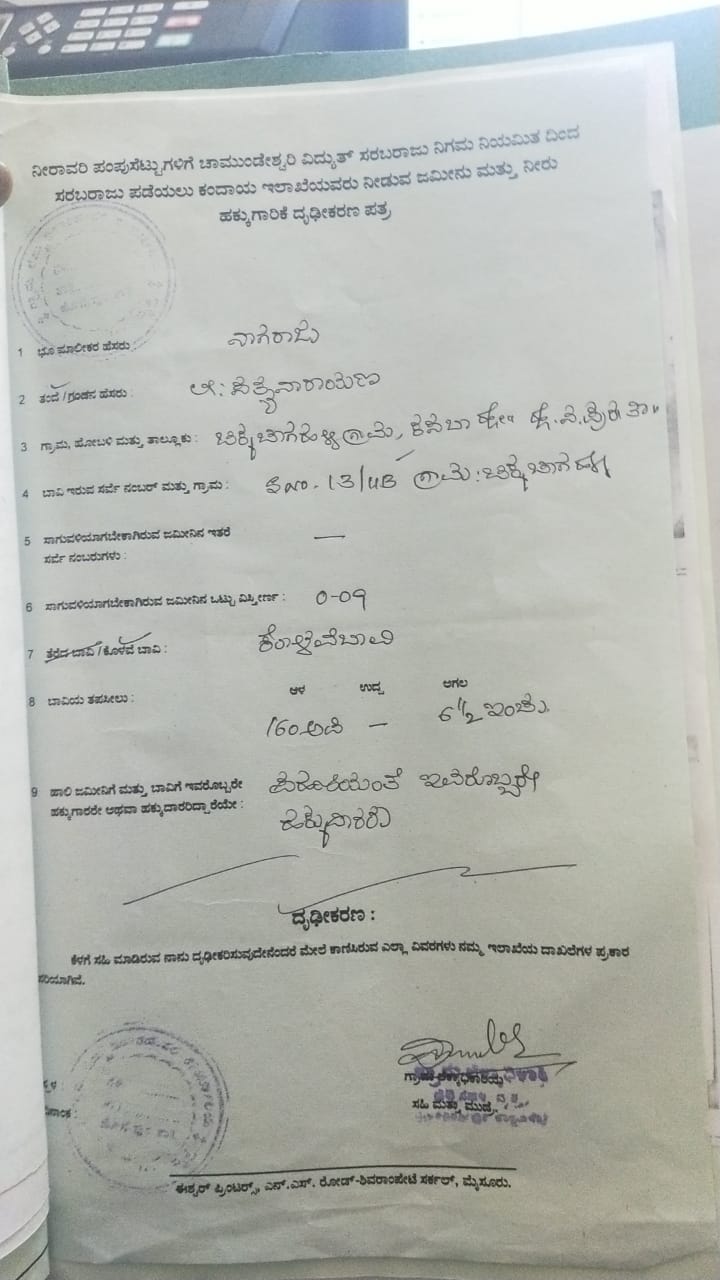 ನೀರಾವರಿ ಪಂಪುಸೆಟ್ಟುಗಳಿಗೆ ಚಾಮುಂಡೇಶ್ವರಿ ವಿದ್ಯುತ್ ಸರಬರಾಜು ನಿಗಮ ನಿಯಮಿತ ದಿಂದ
ಸರಬರಾಜು ಪಡೆಯಲು ಕಂದಾಯ ಇಲಾಖೆಯವರು ನೀಡುವ ಜಮೀನು ಮತ್ತು ನೀರು
ಹಕ್ಕುಗಾರಿಕೆ ದೃಢೀಕರಣ ಪತ್ರ
1 ಭೂ ಮಾಲೀಕರ ಹೆಸರು : ನಾಗರಾಜು
2 ತಂದೆ / ಗಂಡನ ಹೆಸರು : ಲೇ: ಸತ್ಯನಾರಾಯಣ
3 ಗ್ರಾಮ, ಹೋಬಳಿ ಮತ್ತು ತಾಲ್ಲೂಕು : ಗ್ರಾಮ, ಕಸಬಾ
4 ಬಾವಿ ಇರುವ ಸರ್ವೆ ನಂಬರ್ ಮತ್ತು ಗ್ರಾಮ : 13/4B ಗ್ರಾಮ :
5 ಸಾಗುವಳಿಯಾಗಬೇಕಾಗಿರುವ ಜಮೀನಿನ ಇತರೆ —
ಸರ್ವೆ ನಂಬರುಗಳು :
6 ಸಾಗುವಳಿಯಾಗಬೇಕಾಗಿರುವ ಜಮೀನಿನ ಒಟ್ಟು ವಿಸ್ತೀರ್ಣ : 0-09
7 ತೆರೆದ ಬಾವಿ / ಕೊಳವೆ ಬಾವಿ : ಕೊಳವೆಬಾವಿ
8 ಬಾವಿಯ ತಪಸೀಲು : ಆಳ ಉದ್ದ ಅಗಲ
160 ಅಡಿ — 6 1/2 ಇಂಚು
9 ಹಾಲಿ ಜಮೀನಿಗೆ ಮತ್ತು ಬಾವಿಗೆ ಇವರೊಬ್ಬರೇ ಪಹಣಿಯಂತೆ ಇವರೊಬ್ಬರೇ
ಹಕ್ಕುಗಾರರೇ ಅಥವಾ ಹಕ್ಕುದಾರರಿದ್ದಾರೆಯೇ : ಹಕ್ಕುದಾರರು
ದೃಢೀಕರಣ :
ಕೆಳಗೆ ಸಹಿ ಮಾಡಿರುವ ನಾನು ದೃಢೀಕರಿಸುವುದೇನೆಂದರೆ ಮೇಲೆ ಕಾಣಿಸಿರುವ ಎಲ್ಲಾ ವಿವರಗಳು ನಮ್ಮ ಇಲಾಖೆಯ ದಾಖಲೆಗಳ ಪ್ರಕಾರ
ಸರಿಯಾಗಿವೆ.
ಸಹಿ ಮತ್ತು ಮುದ್ರೆ
ಈಶ್ವರ್ ಪ್ರಿಂಟರ್ಸ್, ಎನ್.ಎಸ್. ರೋಡ್-ಶಿವರಾಂಪೇಟೆ ಸರ್ಕಲ್, ಮೈಸೂರು.